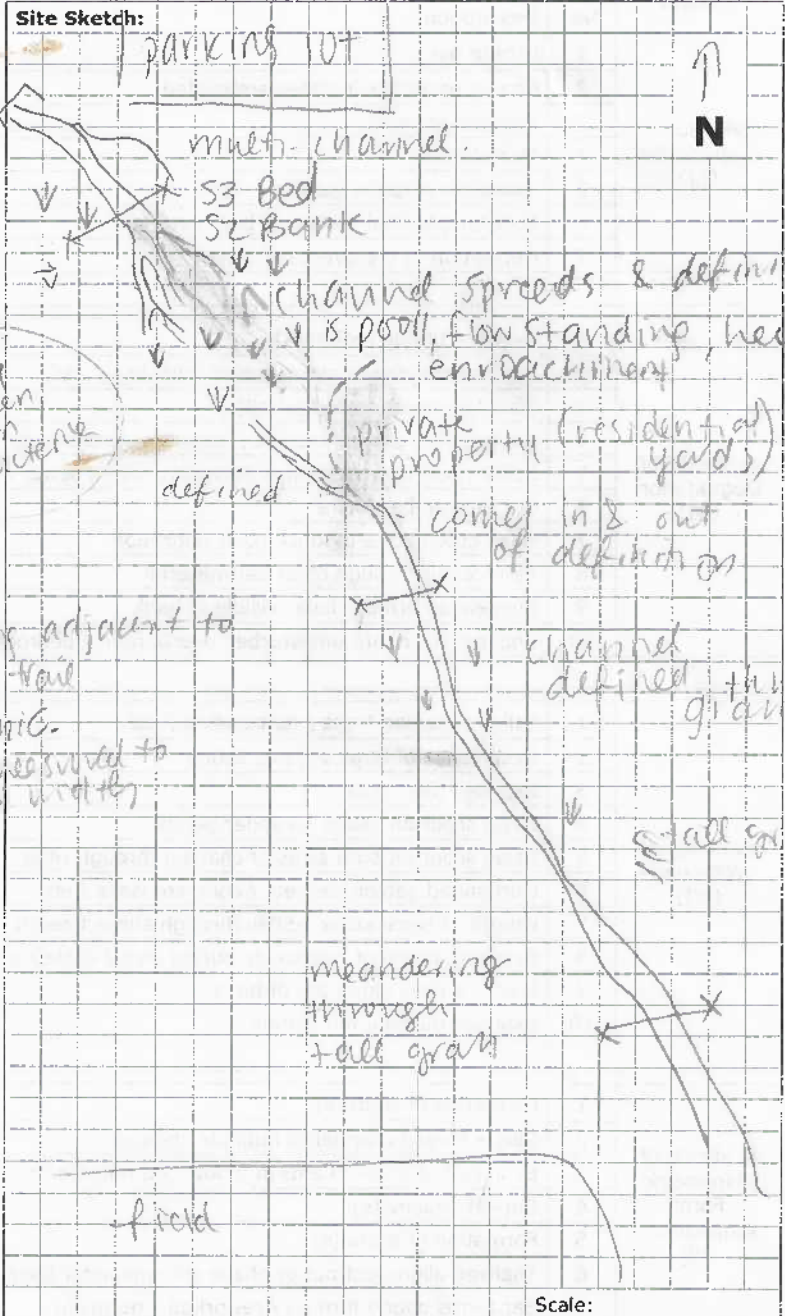 Site Sketch:
parking 10+
N
multi-channel.
S3 Bed
S2 Bank
channel spreds & defini
is pooll, flow standing, hea
enroachment
private
property (residential)
yards)
defined
comes in & out
of definition
adjacent to
trail
channel
defined thr
measured to
width
tall gr
meandering
through
tall grass
field
Scale: